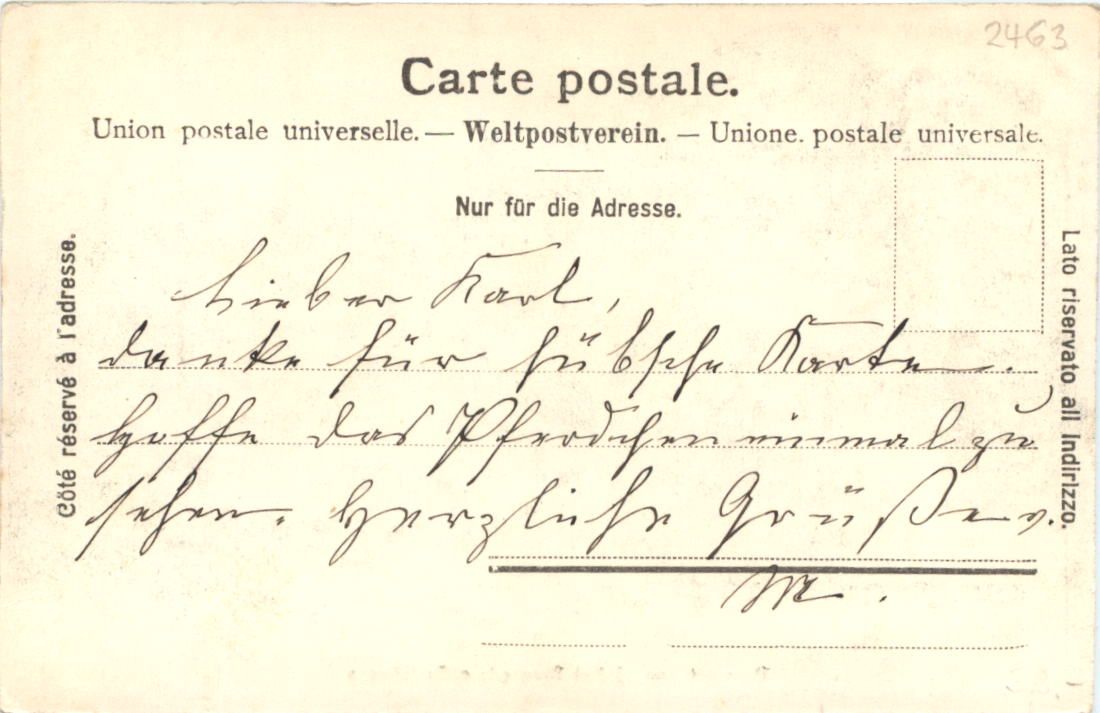 2463
Carte postale.
Union postale universelle. — Weltpostverein. — Unione. postale universale.
Nur für die Adresse.
Côté réservé à l'adresse.
Lato riservato all Indirizzo.
Lieber Karl,
danke für hübsche Karte.
Hoffe das Pferdchen einmal zu
sehen. Herzliche Grüße v.
M.